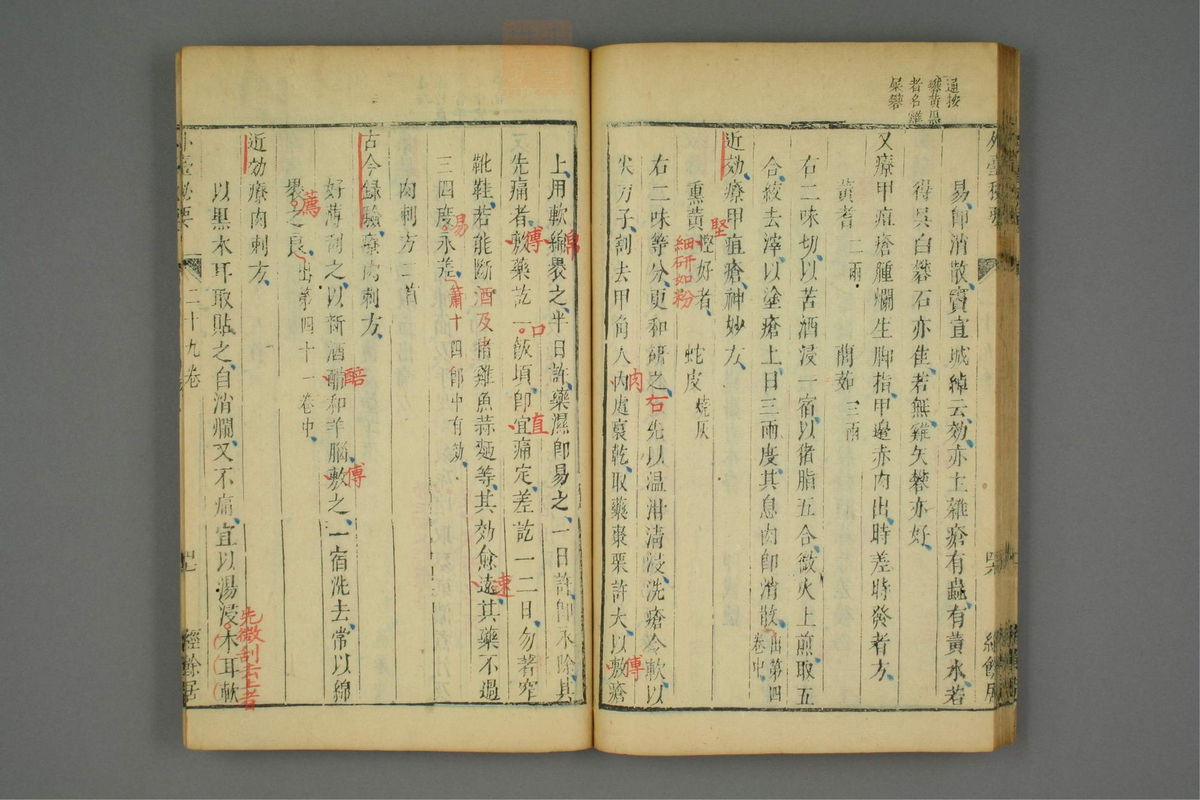 通按
礬黃黑
者名雞
屎礬
易卽消散竇宣城綽云効亦主雜瘡有蟲有黃水若
得吳白礬石亦佳若無雞矢礬亦好
又療甲疽瘡腫爛生脚指甲邊赤肉出時差時發者方
黃耆二兩 䕡茹三兩
右二味切以苦酒浸一宿以猪脂五合微火上煎取五
合絞去滓以塗瘡上日三兩度其息肉卽消散出第四
卷中
近効療甲疽瘡神妙方
熏黃慳好者 蛇皮燒灰
堅
細研如粉
右二味等分更和研之先以温泔清浸洗瘡令軟以
右
尖刀子割去甲角入肉處裛乾取藥棗栗許大以敷瘡
肉
傅
上用軟綿褁之半日許藥濕卽易之一日許卽永除其
帛
先痛者敷藥訖一飯頃卽宜痛定差訖一二日勿著窄
傅
口
直
靴鞋若能斷酒及猪雞魚蒜麫等其効愈遠其藥不過
速
三四度永差蕭十四郎中有効
易
肉刺方三首
古今録驗療肉刺方
好薄刮之以新酒酺和羊腦敷之一宿洗去常以綿
醅
傅
褁之良出第四十一卷中
薦
近効療肉刺方
以黑木耳取貼之自消爛又不痛宜以湯浸木耳軟
先微刮去上者
外臺秘要
二十九卷
經餘居